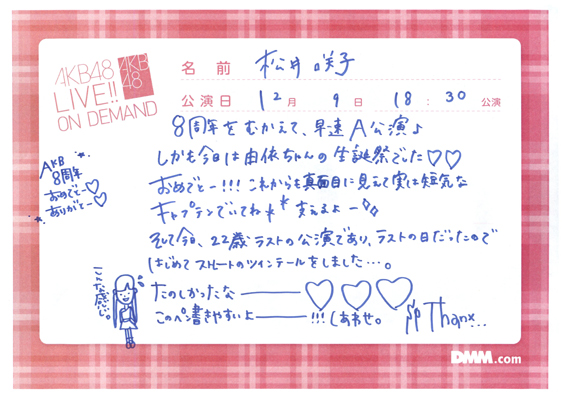 AKB48
LIVE!!
ON DEMAND
AKB
48
名 前 松井 咲子
公演日 12月 9日 18:30公演
8周年をむかえて、早速A公演♪
しかも今日は由依ちゃんの生誕祭でした♡♡
おめでとー!!!これからも真面目に見えて実は短気な
キャプテンでいてね** 支えるよー
そして今日、22歳ラストの公演であり、ラストの日だったので
はじめてストレートのツインテールをしました…。
たのしかったなー♡♡♡
このペン書きやすいよー!!!しあわせ。
Thanx...
AKB
8周年
おめでとー♡
ありがとー♡
こんな感じ。
DMM.com